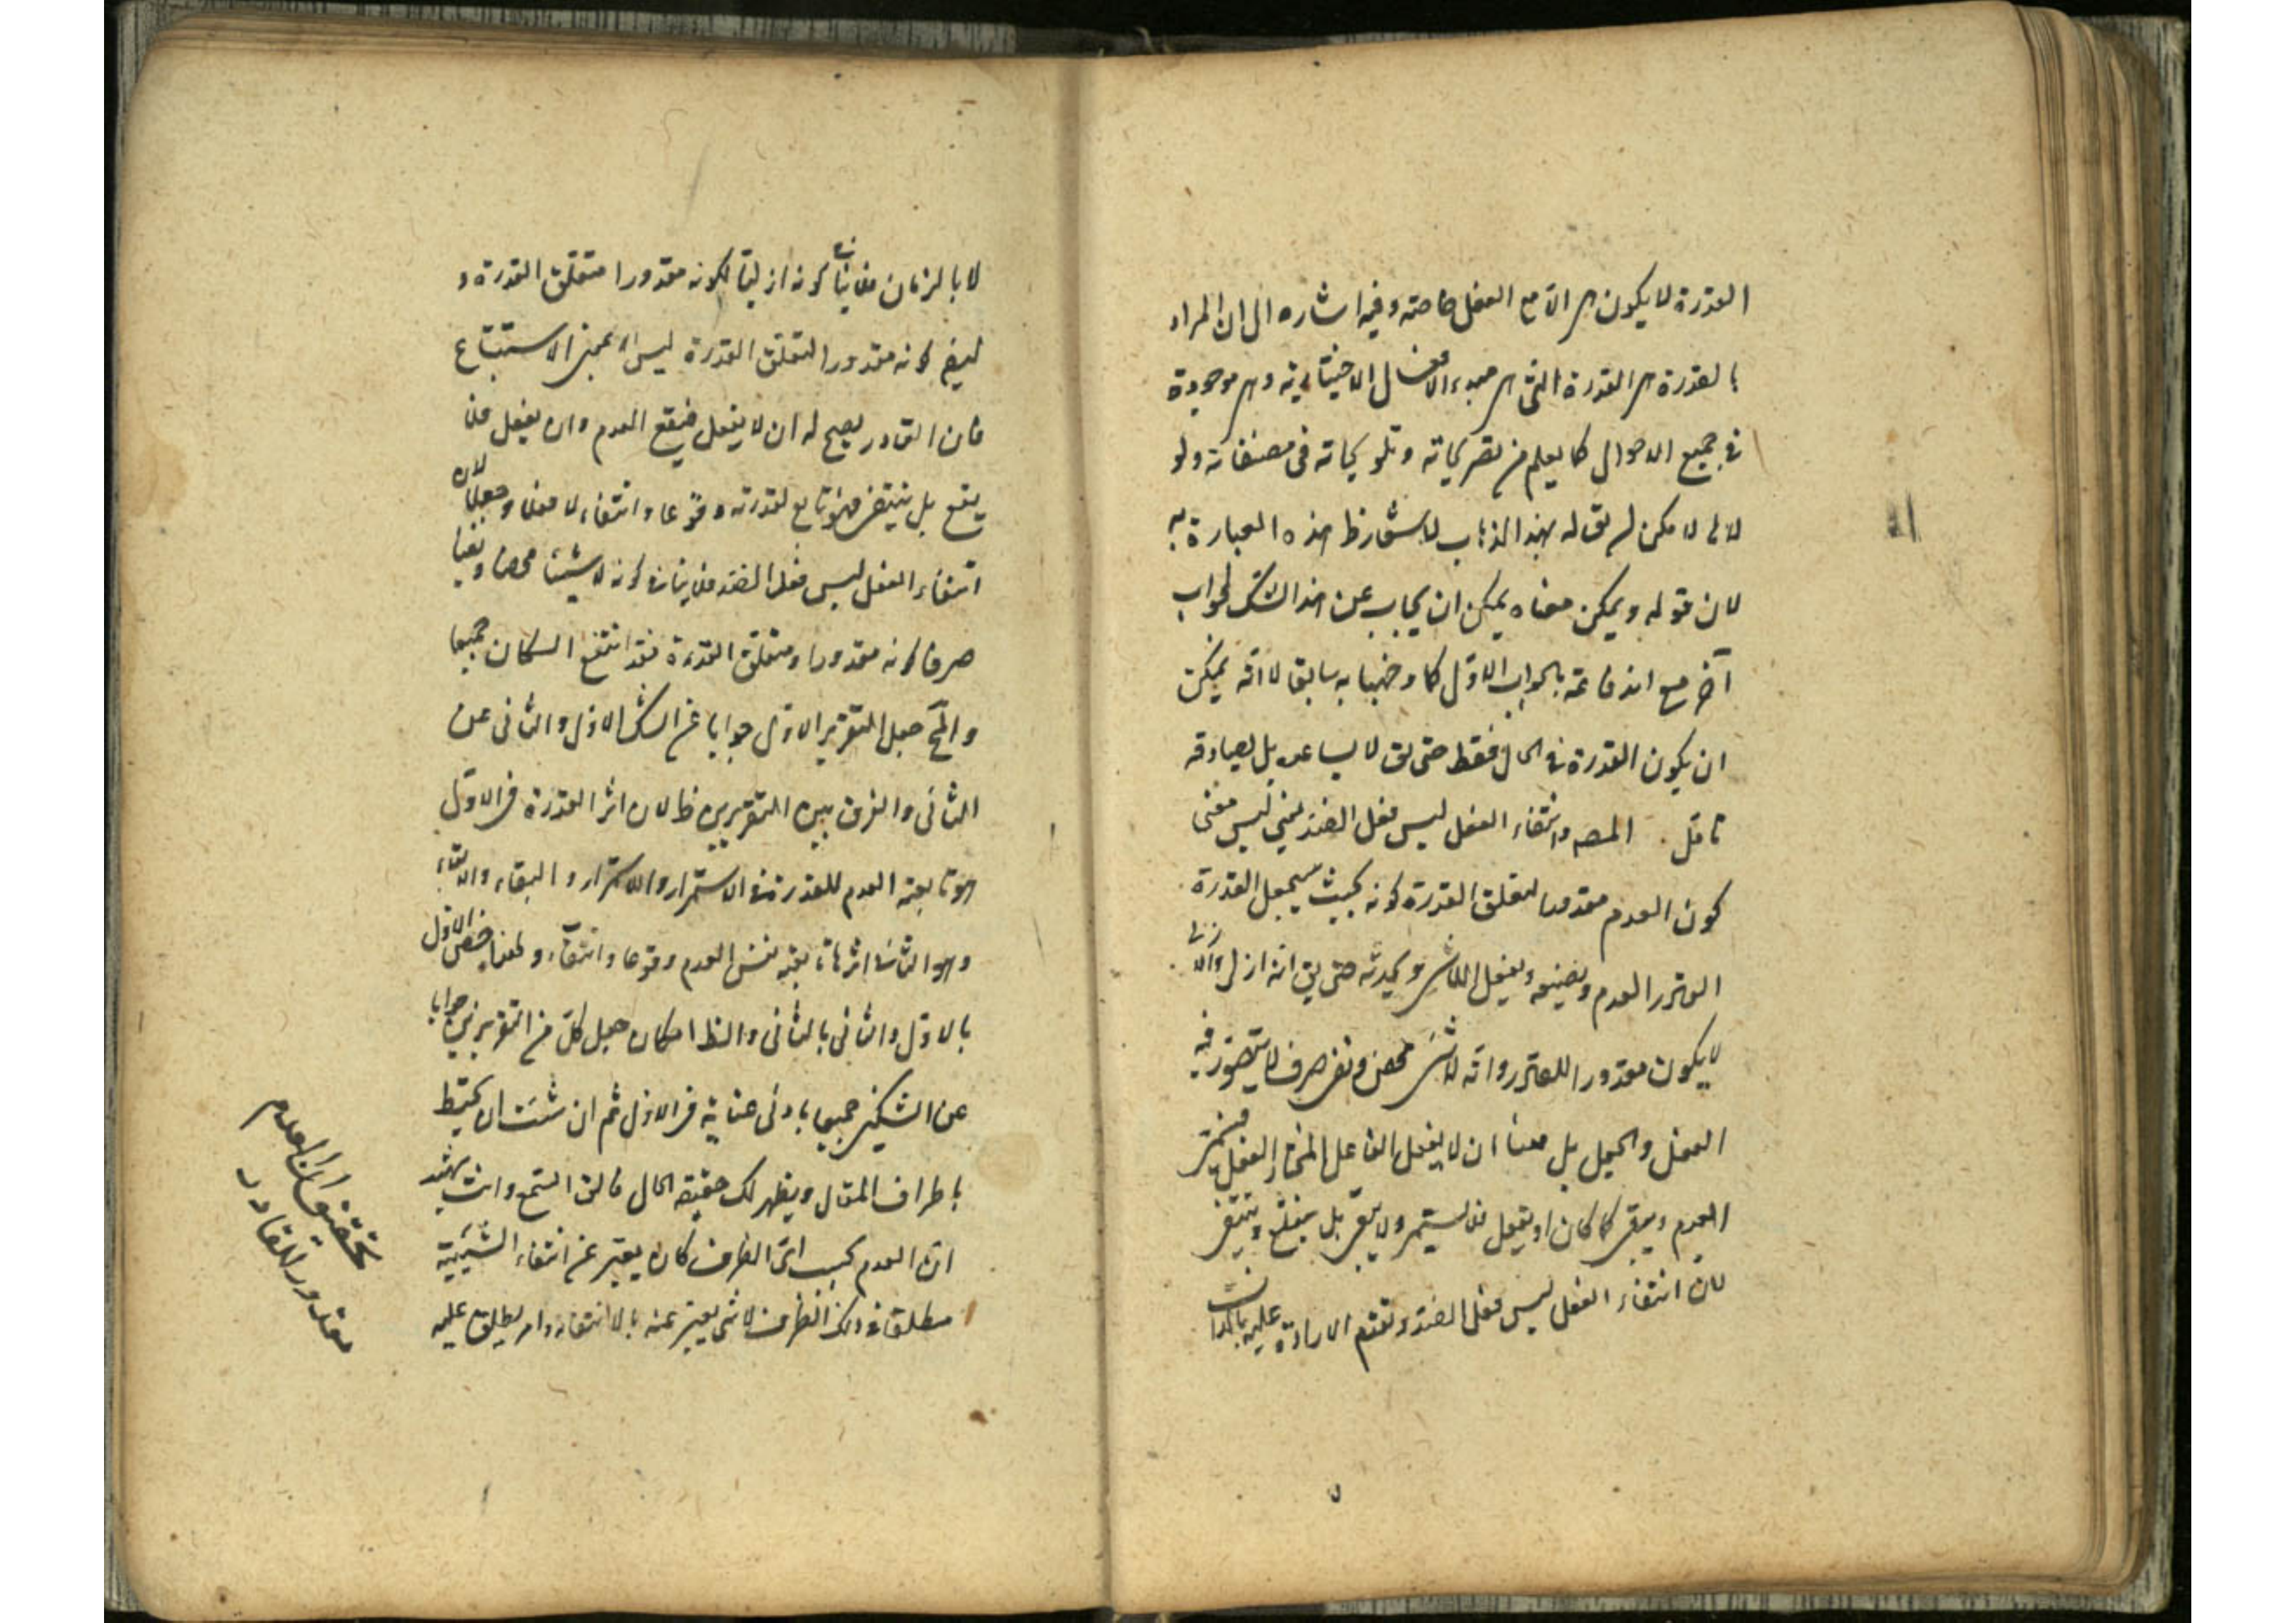 القدرة لا يكون هى الا مع الفعل خاصة وفيه اشاره الى ان المراد
بالقدرة هى القدرة التى هى مبدء الافعال الاختيارية وهى موجودة
فى جميع الاحوال كما يعلم من تصريحاته وتلويحاته فى مصنفاته ولو
لا لا يمكن لم يق له بهذا الذهاب هذه العبارة به
لان قوله ويمكن معناه يمكن ان يجاب عن هذا الشك بجواب
آخر مع اندفاعه بالجواب الاول كما وجهنا به سابقا لا انه يمكن
ان يكون القدرة فى الحال فقط حتى يق لا يساعد بل يصادقه
تامل المصه وانتفاء الفعل ليس فعل الضد يعنى ليس معنى
كون العدم مقدورا لتعلق القدرة كونه بحيث يجعل القدرة
العدم ويصنعه ويفعل اللاشى ويحدثه حتى يق انه ازلى والازلى
لا يكون مقدورا للقادر وانه لا شى محض ونفى صرف لا يتصور فيه
الفعل والجعل بل معناه ان لا يفعل الفاعل المختار الفعل فيستمر
العدم ويبقى كما كان او يفعل فلا يستمر ولا يبقى بل ينتفى
لان انتفاء الفعل ليس فعل الضد وتقدم الارادة عليه بالذات
لا بالزمان فلا ينافى كونه ازليا لكونه مقدورا متعلق القدرة و
ايضا كونه مقدورا لتعلق القدرة ليس الا بمعنى الاستتباع
فان القادر يصح له ان لا يفعل فيقع العدم وان يفعل فلا
يقع بل ينتفى فهو تابع لقدرته وقوعا وانتفاء لا فعلا وجعلا لان
انتفاء الفعل ليس فعل الضد فلا ينافى كونه لا شيئا محضا ونفيا
صرفا كونه مقدورا ومتعلق القدرة فقد اندفع الشكان جميعا
جعل التقرير الاول جوابا عن الشك الاول والثانى عن
الثانى والفرق بين التقريرين ظ لان اثر القدرة فى الاول
هو تابعية العدم للقدرة فى الاستمرار والاستمرار والبقاء والابقاء
وهو الثانى اثرها تابعية نفس العدم وقوعا وانتفاء ولهذا خص الاول
بالاول والثانى بالثانى والظ امكان جعل كل من التقريرين جوابا
عن الشكين جميعا بادنى عناية فى الاول ثم ان شئت ان تحيط
باطراف المقال ويظهر لك حقيقة الحال فالق السمع وانت شهيد
ان العدم بحسب اى الظرف كان يعبر عن انتفاء الشيئية
مطلقا فى ذلك الظرف لا شى يعبر عنه بالانتفاء وامر يطلق عليه
تحقيق ان العدم
مقدور للقادر